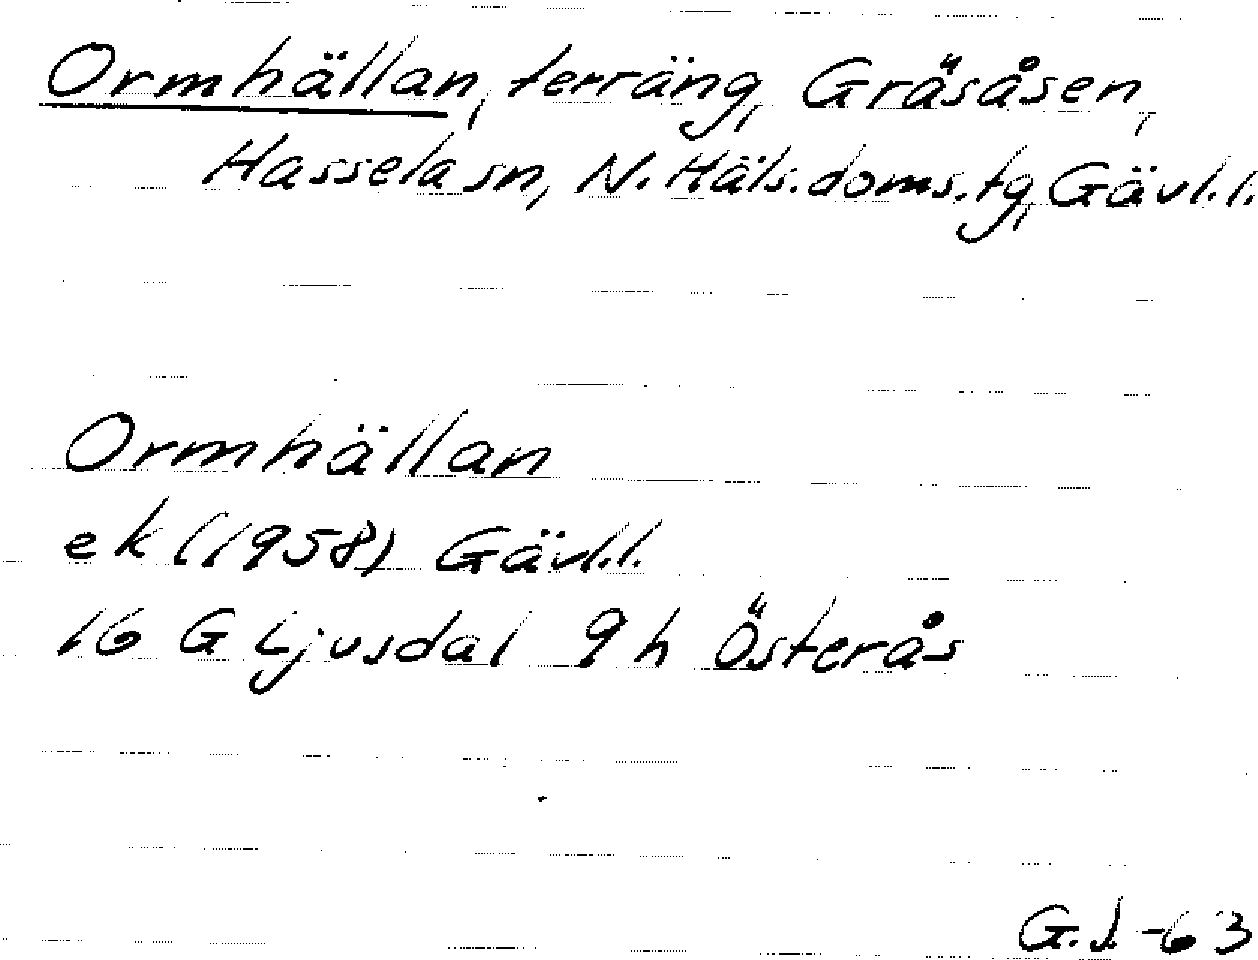 Ormhällan, terräng, Gräsåsen,
Hassela sn, N. Häls. doms. tg, Gävl. l.
Ormhällan
ek (1958) Gävl. l.
16 G Ljusdal 9 h Österås
G. J. -63